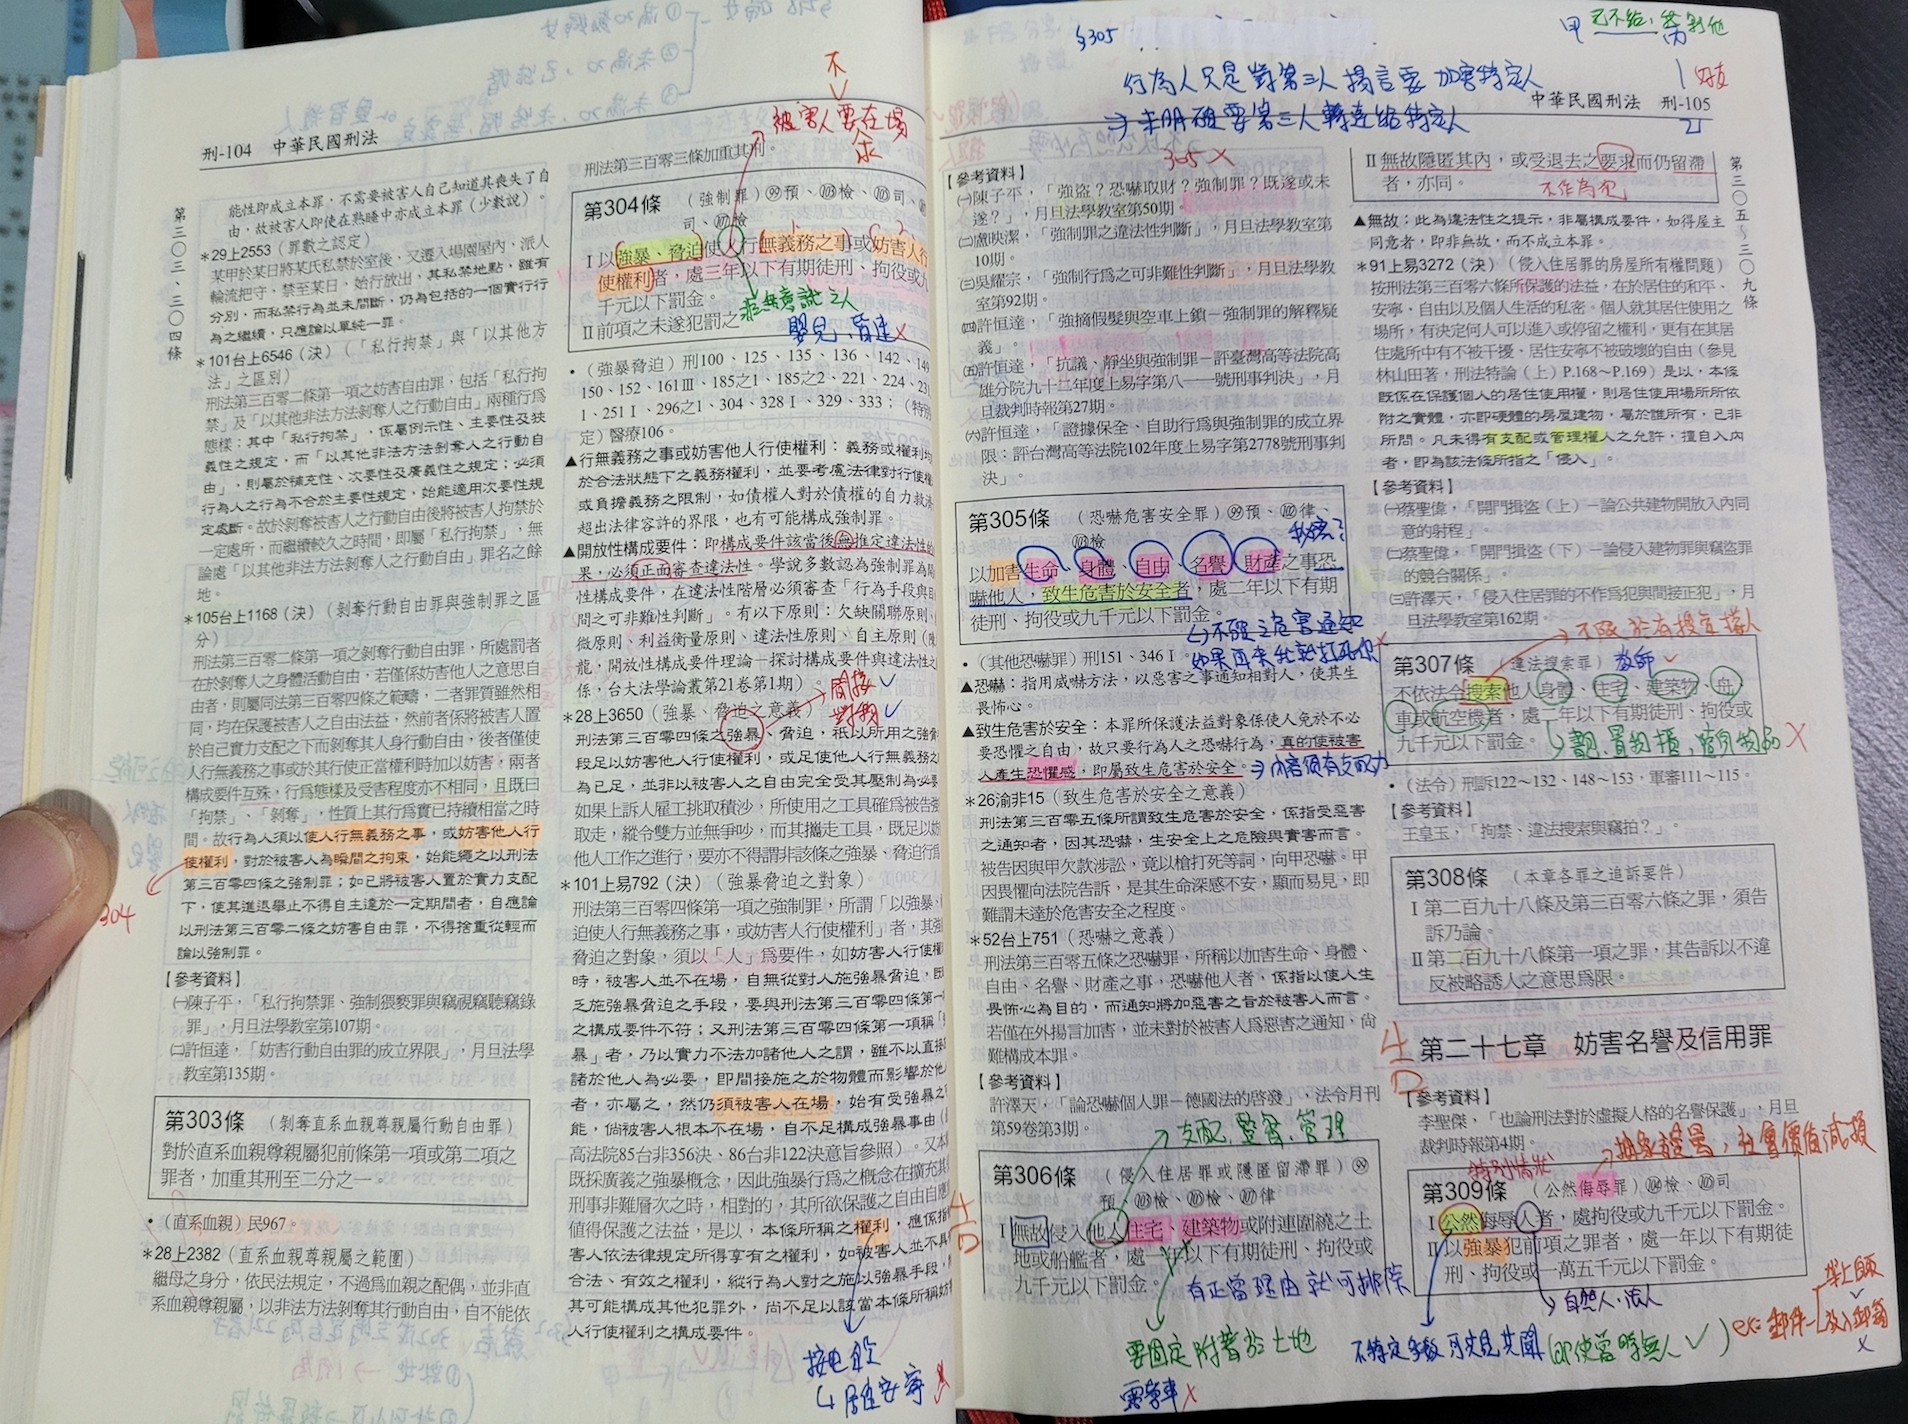 刑-104　中華民國刑法
第三〇三、三〇四條
不
被害人要在場
能性即成立本罪，不需要被害人自己知道其喪失了自
由，故被害人即使在熟睡中亦成立本罪（少數說）。
*29上2553（罪數之認定）
某甲於某日將某氏私禁於室後，又遷入場園屋內，派人
輪流把守，禁至某日，始行放出，其私禁地點，雖有
分別，而私禁行為並未間斷，仍為包括的一個實行行
為之繼續，只應論以單純一罪。
*101台上6546（決）（「私行拘禁」與「以其他方
法」之區別）
刑法第三百零二條第一項之妨害自由罪，包括「私行拘
禁」及「以其他非法方法剝奪人之行動自由」兩種行為
態樣；其中「私行拘禁」，係屬例示性、主要性及狹
義性之規定，而「以其他非法方法剝奪人之行動自
由」，則屬於補充性、次要性及廣義性之規定；必須
行為人之行為不合於主要性規定，始能適用次要性規
定處斷。故於剝奪被害人之行動自由後將被害人拘禁於
一定處所，而繼續較久之時間，即屬「私行拘禁」，無
論處「以其他非法方法剝奪人之行動自由」罪名之餘
地。
*105台上1168（決）（剝奪行動自由罪與強制罪之區
分）
刑法第三百零二條第一項之剝奪行動自由罪，所處罰者
在於剝奪人之身體活動自由，若僅係妨害他人之意思自
由者，則屬同法第三百零四條之範疇，二者罪質雖然相
同，均在保護被害人之自由法益，然前者係將被害人置
於自己實力支配之下而剝奪其人身行動自由，後者僅使
人行無義務之事或於其行使正當權利時加以妨害，兩者
構成要件互殊，行為態樣及受害程度亦不相同，且既曰
「拘禁」、「剝奪」，性質上其行為實已持續相當之時
間。故行為人須以使人行無義務之事，或妨害他人行
使權利，對於被害人為瞬間之拘束，始能繩之以刑法
第三百零四條之強制罪；如已將被害人置於實力支配
下，使其進退舉止不得自主達於一定期間者，自應論
以刑法第三百零二條之妨害自由罪，不得捨重從輕而
論以強制罪。
304
【參考資料】
㈠陳子平，「私行拘禁罪、強制猥褻罪與竊視竊聽竊錄
罪」，月旦法學教室第107期。
㈡許恒達，「妨害行動自由罪的成立界限」，月旦法學
教室第135期。
第303條　（剝奪直系血親尊親屬行動自由罪）
對於直系血親尊親屬犯前條第一項或第二項之
罪者，加重其刑至二分之一。
•（直系血親）民967。
*28上2382（直系血親尊親屬之範圍）
繼母之身分，依民法規定，不過為血親之配偶，並非直
系血親尊親屬，以非法方法剝奪其行動自由，自不能依
刑法第三百零三條加重其刑。
第304條　（強制罪）99預、103檢、105司、
司、107檢
Ⅰ以強暴、脅迫使人行無義務之事或妨害人行
使權利者，處三年以下有期徒刑、拘役或九
千元以下罰金。
Ⅱ前項之未遂犯罰之
非無意識之人
嬰兒、昏迷X
•（強暴脅迫）刑100、125、135、136、142、149
150、152、161Ⅲ、185之1、185之2、221、224、231
1、251Ⅰ、296之1、304、328Ⅰ、329、333；（特別
定）醫療106。
▲行無義務之事或妨害他人行使權利：義務或權利
於合法狀態下之義務權利，並要考慮法律對行使
或負擔義務之限制，如債權人對於債權的自力救濟
超出法律容許的界限，也有可能構成強制罪。
▲開放性構成要件：即構成要件該當後無推定違法性的
果，必須正面審查違法性。學說多數認為強制罪為開
性構成要件，在違法性階層必須審查「行為手段與目
間之可非難性判斷」。有以下原則：欠缺關聯原則、
微原則、利益衡量原則、違法性原則、自主原則（陳
龍，開放性構成要件理論－探討構成要件與違法性之
係，台大法學論叢第21卷第1期）。
間接✓
對物✓
*28上3650（強暴、脅迫之意義）
刑法第三百零四條之強暴、脅迫，祇以所用之強
段足以妨害他人行使權利，或足使他人行無義務之
為已足，並非以被害人之自由完全受其壓制為必要
如果上訴人雇工挑取積沙，所使用之工具確為被告強
取走，縱令雙方並無爭吵，而其攜走工具，既足以妨
他人工作之進行，要亦不得謂非該條之強暴、脅迫行
*101上易792（決）（強暴脅迫之對象）
刑法第三百零四條第一項之強制罪，所謂「以強暴、
迫使人行無義務之事，或妨害人行使權利」者，其強
脅迫之對象，須以「人」為要件，如妨害人行使權
時，被害人並不在場，自無從對人施強暴脅迫，既
乏施強暴脅迫之手段，要與刑法第三百零四條第一
之構成要件不符；又刑法第三百零四條第一項稱「
暴」者，乃以實力不法加諸他人之謂，雖不以直接
諸於他人為必要，即間接施之於物體而影響於他
者，亦屬之，然仍須被害人在場，始有受強暴之
能，倘被害人根本不在場，自不足構成強暴事由（
高法院85台非356決、86台非122決意旨參照）。又本
既採廣義之強暴概念，因此強暴行為之概念在擴充其
刑事非難層次之時，相對的，其所欲保護之自由自應
值得保護之法益，是以，本條所稱之權利，應係指
害人依法律規定所得享有之權利，如被害人並不具
合法、有效之權利，縱行為人對之施以強暴手段，
其可能構成其他犯罪外，尚不足以該當本條所稱妨
人行使權利之構成要件。
按電鈴
居住安寧
§305
行為人只是對第三人揚言要加害特定人
⇒未明確要第三人轉達給特定人
305X
甲
好友
中華民國刑法　刑-105
第三〇五～三〇九條
【參考資料】
㈠陳子平，「強盜？恐嚇取財？強制罪？既遂或未
遂？」，月旦法學教室第50期。
㈡盧映潔，「強制罪之違法性判斷」，月旦法學教室第
10期。
㈢吳耀宗，「強制行為之可非難性判斷」，月旦法學教
室第92期。
㈣許恒達，「強摘假髮與空車上鎖－強制罪的解釋疑
義」。
㈤許恒達，「抗議、靜坐與強制罪－評臺灣高等法院高
雄分院九十二年度上易字第八一一號刑事判決」，月
旦裁判時報第27期。
㈥許恒達，「證據保全、自助行為與強制罪的成立界
限：評台灣高等法院102年度上易字第2778號刑事判
決」。
第305條　（恐嚇危害安全罪）99預、102律、
103檢
以加害生命、身體、自由、名譽、財產之事恐
嚇他人，致生危害於安全者，處二年以下有期
徒刑、拘役或九千元以下罰金。
↳不確定危害通知
如果再來我就打死你X
•（其他恐嚇罪）刑151、346Ⅰ。
▲恐嚇：指用威嚇方法，以惡害之事通知相對人，使其生
畏怖心。
▲致生危害於安全：本罪所保護法益對象係使人免於不必
要恐懼之自由，故只要行為人之恐嚇行為，真的使被害
人產生恐懼感，即屬致生危害於安全。
*26渝非15（致生危害於安全之意義）
刑法第三百零五條所謂致生危害於安全，係指受惡害
之通知者，因其恐嚇，生安全上之危險與實害而言。
被告因與甲欠款涉訟，竟以槍打死等詞，向甲恐嚇。甲
因畏懼向法院告訴，是其生命深感不安，顯而易見，即
難謂未達於危害安全之程度。
*52台上751（恐嚇之意義）
刑法第三百零五條之恐嚇罪，所稱以加害生命、身體、
自由、名譽、財產之事，恐嚇他人者，係指以使人生
畏怖心為目的，而通知將加惡害之旨於被害人而言。
若僅在外揚言加害，並未對於被害人為惡害之通知，尚
難構成本罪。
【參考資料】
許澤天，「論恐嚇個人罪－德國法的啓發」，法令月刊
第59卷第3期。
支配、監督、管理
第306條　（侵入住居罪或隱匿留滯罪）99
預、103檢、105檢、107律
Ⅰ無故侵入他人住宅、建築物或附連圍繞之土
地或船艦者，處一年以下有期徒刑、拘役或
九千元以下罰金。
有正當理由就可排除
要固定附著於土地
露營車X
Ⅱ無故隱匿其內，或受退去之要求而仍留滯
者，亦同。
不作為犯
▲無故：此為違法性之提示，非屬構成要件，如得屋主
同意者，即非無故，而不成立本罪。
*91上易3272（決）（侵入住居罪的房屋所有權問題）
按刑法第三百零六條所保護的法益，在於居住的和平、
安寧，自由以及個人生活的私密。個人就其居住使用之
場所，有決定何人可以進入或停留之權利，更有在其居
住處所中有不被干擾、居住安寧不被破壞的自由（參見
林山田著，刑法特論（上）P.168～P.169）是以，本條
既係在保護個人的居住使用權，則居住使用場所所依
附之實體，亦即硬體的房屋建物，屬於誰所有，已非
所問。凡未得有支配或管理權人之允許，擅自入內
者，即為該法條所指之「侵入」。
【參考資料】
㈠蔡聖偉，「開門揖盜（上）－論公共建物開放入內同
意的射程」。
㈡蔡聖偉，「開門揖盜（下）－論侵入建物罪與竊盜罪
的競合關係」。
㈢許澤天，「侵入住居罪的不作為犯與間接正犯」，月
旦法學教室第162期。
第307條　（違法搜索罪）
教師
不依法令搜索他人身體、住宅、建築物、舟、
車或航空機者，處二年以下有期徒刑、拘役或
九千元以下罰金。
•（法令）刑訴122～132、148～153，軍審111～115。
【參考資料】
王皇玉，「拘禁、違法搜索與竊拍？」。
第308條　（本章各罪之追訴要件）
Ⅰ第二百九十八條及第三百零六條之罪，須告
訴乃論。
Ⅱ第二百九十八條第一項之罪，其告訴以不違
反被略誘人之意思為限。
第二十七章　妨害名譽及信用罪
【參考資料】
李聖傑，「也論刑法對於虛擬人格的名譽保護」，月旦
裁判時報第4期。
第309條　（公然侮辱罪）104檢、105司
Ⅰ公然侮辱人者，處拘役或九千元以下罰金。
Ⅱ以強暴犯前項之罪者，處一年以下有期徒
刑、拘役或一萬五千元以下罰金。
自然人、法人
不特定多數可共見共聞（即使當時無人✓）